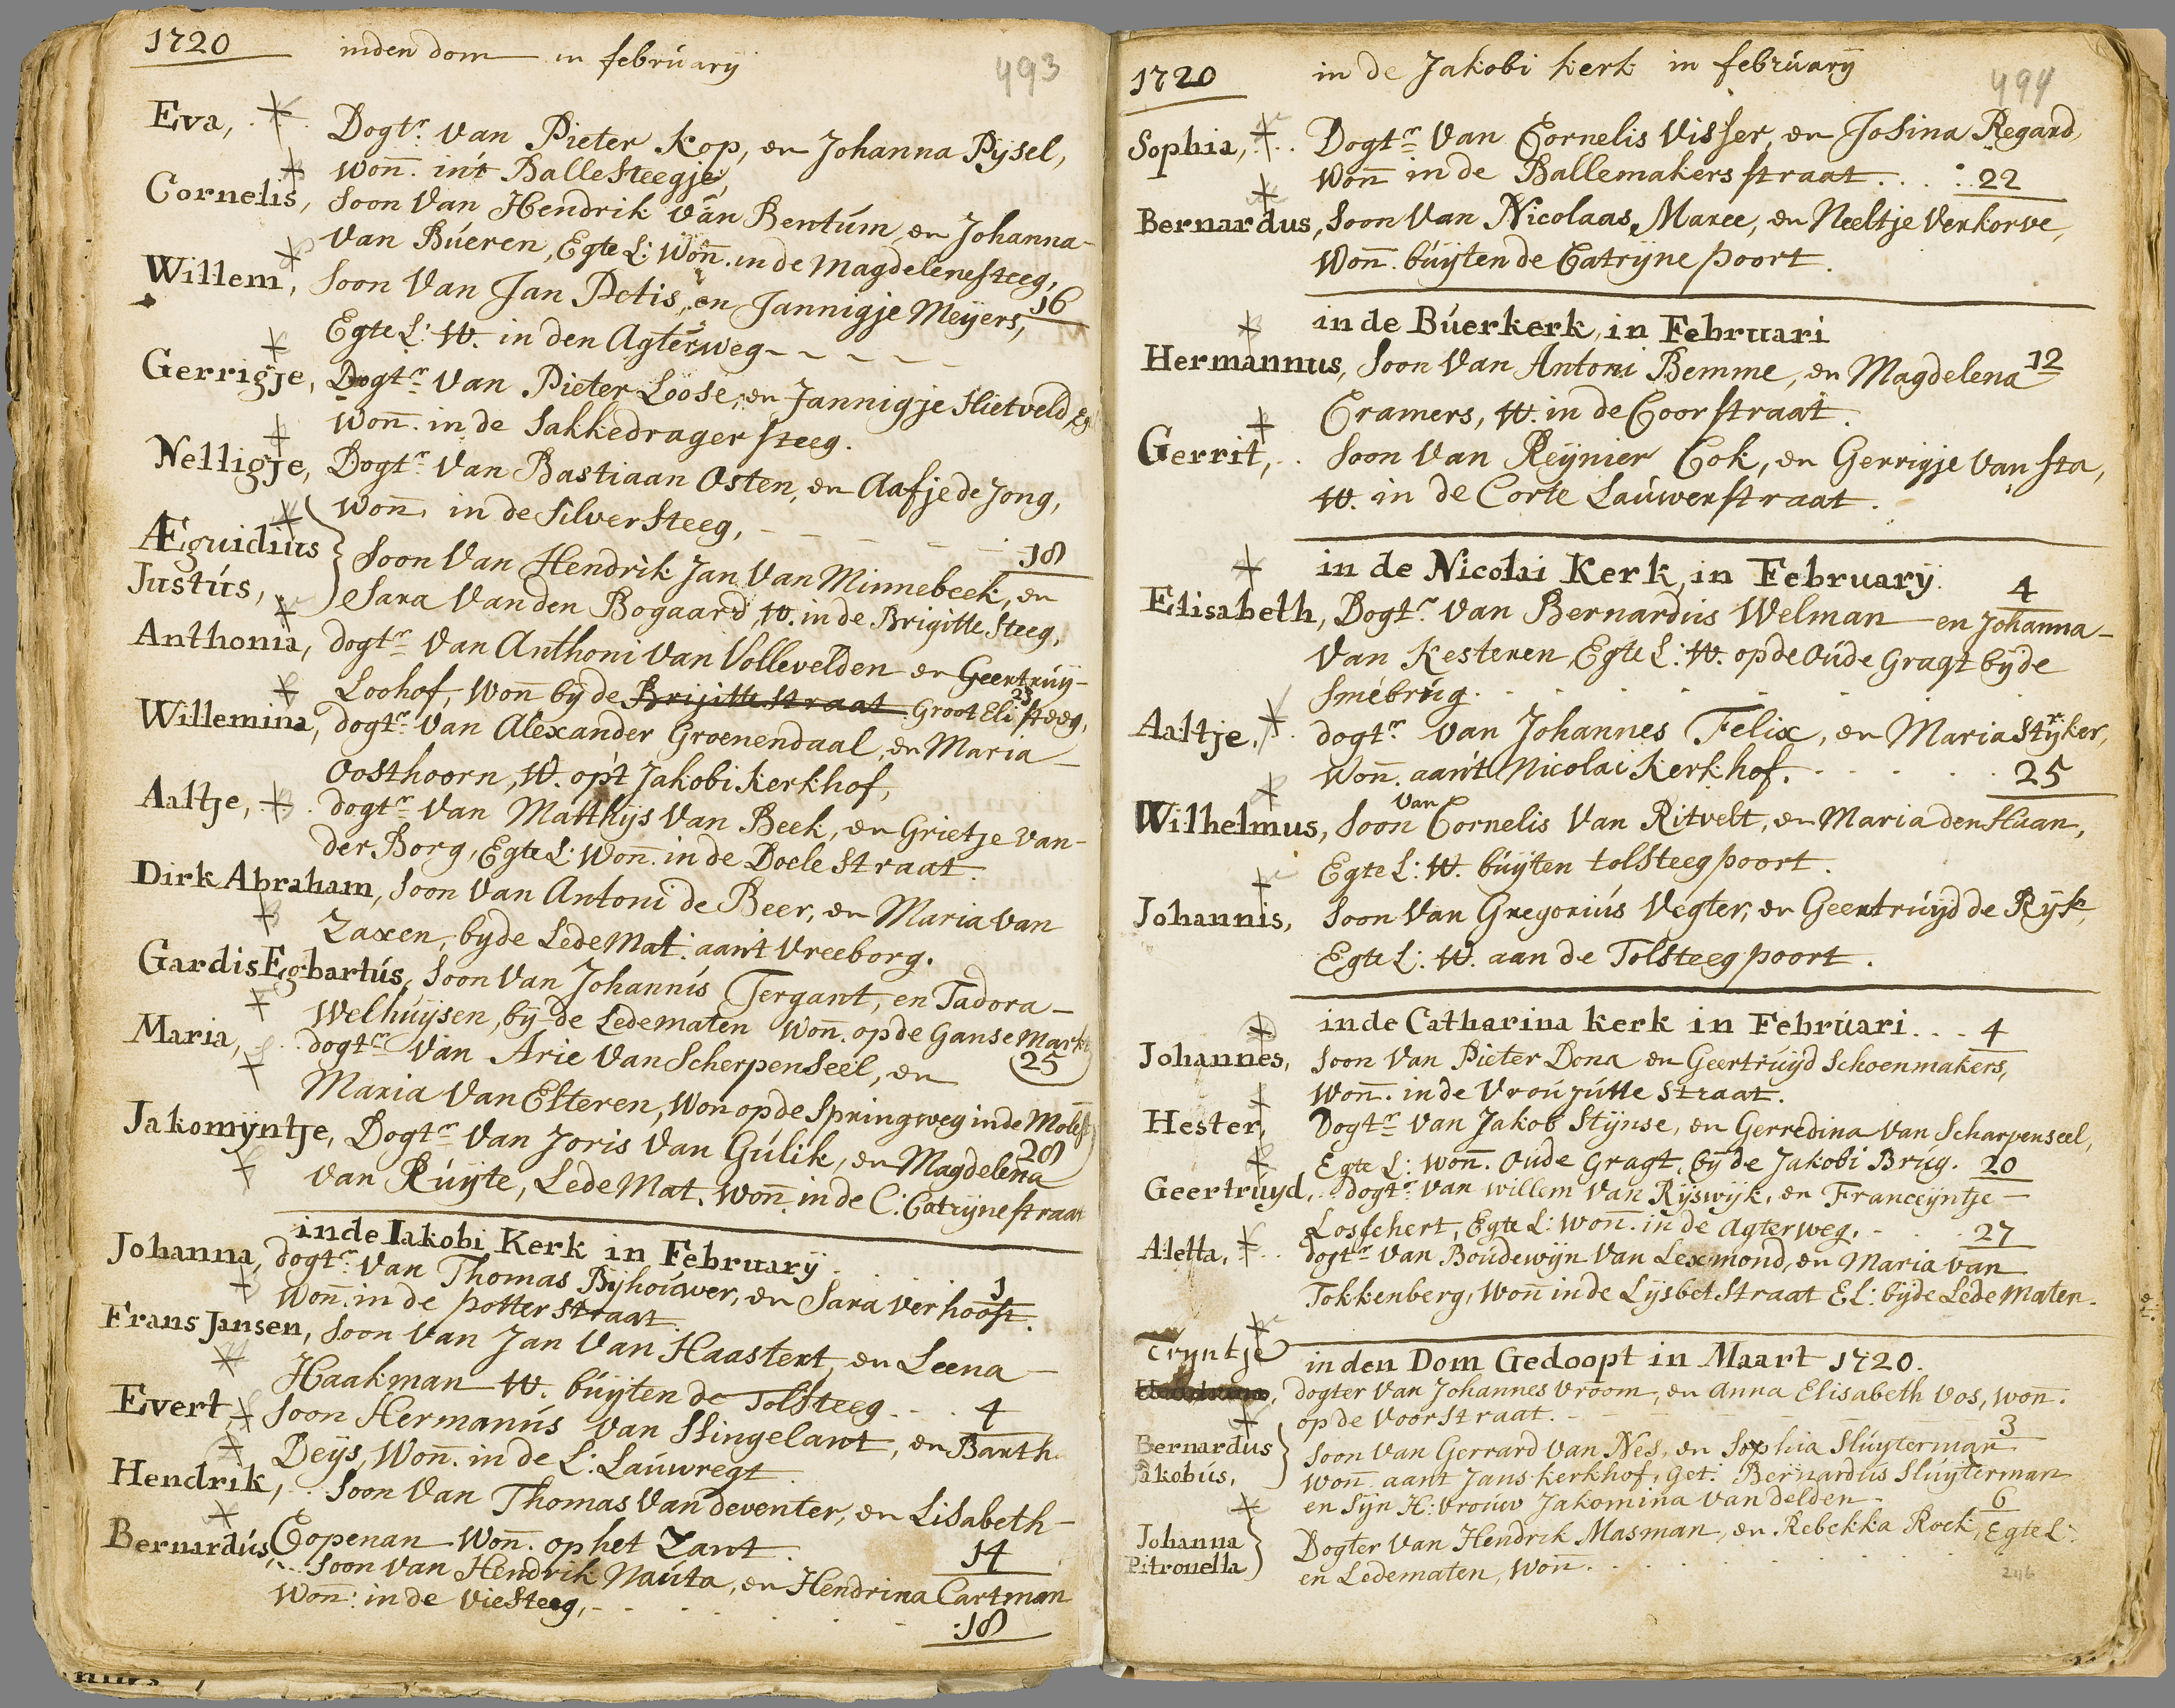 1720 in den dom in februarÿ 493
Eva, Dogtr. van Pieter Kop, en Johanna Pÿsel,
Woñ. in't Ballesteegje,
Cornelis, Soon Van Hendrik van Bentúm, en Johanna-
Van Búeren, Egte L: Woñ. in de Magdelenesteeg,
16
Willem, Soon Van Jan Petis, en Jannigje Meÿers,
Egte L: W. in den Agterweg - - - -
Gerrigje, Dogtr. Van Pieter Loose, en Jannigje Hietveld, Eg
Woñ. in de Sakkedragersteeg.
Nelligje, Dogtr. Van Bastiaan Osten, en Aafje de Jong,
Woñ. in de Silversteeg, - - - - 18
Æguidius
Justús, } Soon Van Hendrik Jan Van Minnebeek, en
Sara Van den Bogaard, W. in de Brigitte Steeg,
Anthonia, dogtr. Van Anthoni Van Vollevelden en Geertrúÿ-
Loohof, Woñ bÿ de Brijitte straat Groot Eli steeg,
23
Willemina, dogtr. Van Alexander Groenendaal, en Maria -
Oosthoorn, W. op't Jakobi kerkhof,
Aaltje, dogtr. Van Matthÿs Van Beek, en Grietje van-
der Borg, Egte L: Woñ. in de Doele Straat.
Dirk Abraham, Soon Van Antoni de Beer, en Maria van
Zaxen, bÿ de LedeMat: aan't Vreeborg.
Gardis Egbartús, Soon Van Johannis Tergant, en Tadora -
Welhuÿsen, bÿ de Ledematen Woñ. op de Ganse Markt
25
Maria, dogtr. Van Arie Van Scherpenseel, en
Maria Van Esteren, Won op de Springweg in de Molest
28
Jakomÿntje, Dogtr. Van Joris Van Gúlik, en Magdelena
van Rúijte, Lede Mat. Woñ. in de C: Catrijnestraat
in de Iakobi Kerk in Februarÿ.
1
Johanna, dogtr. Van Thomas Bÿhoúwer, en Sara Verhoost.
Woñ. in de potter straat.
Frans Jansen, Soon Van Jan Van Haastert, en Leena -
Haakman W. búÿten de Tolsteeg . . . 4
Evert, Soon Hermanús Van Slingelant, en Barth
Deÿs, Woñ. in de L: Laúwregt.
Hendrik, Soon Van Thomas Van deventer, en Lisabeth -
Copenan Woñ. op het Zant. 14
Bernardús, Soon Van Hendrik Naúta, en Hendrina Cartman
Woñ: in de Viesteeg, - . . . . 18
1720 in de Jakobi kerk in februarÿ 494
Sophia, Dogtr. Van Cornelis Visser, en Josina Regard,
Woñ in de Ballemakersstraat . . . : 22
Bernardus, Soon Van Nicolaas Maree, en Neeltje Verkorve,
Woñ. búÿten de Catrijne poort.
in de Búerkerk, in Februari
12
Hermannus, Soon Van Antoni Bemme, en Magdelena
Cramers, W. in de Coorstraat.
Gerrit, Soon Van Reÿnier Cok, en Gerrigje van Sta,
W. in de Corte Laúwerstraat.
in de Nicolai Kerk, in Februarÿ.
4
Elisabeth, Dogtr. Van Bernardus Welman en Johanna -
Van Kesteren, Egte L: W. op de Oúde Gragt bÿ de
Smébrúg.
Aaltje, dogtr. Van Johannes Felix, en Maria Strÿker,
Woñ. aan't Nicolai Kerkhof. . . . . 25
Wilhelmus, Soon Van Cornelis Van Ritvelt, en Maria den Haan,
Egte L: W. búÿten tolsteegpoort.
Johannis, Soon Van Gregoriús Vegter, en Geertrúÿd de Rÿk,
Egte L: W. aan de Tolsteegpoort.
in de Catharina kerk in Februari . . . 4
Johannes, Soon Van Pieter Dona en Geertrúyd Schoenmakers,
Woñ. in de Vroú jútte Straat.
Hester, Dogtr. Van Jakob Stÿnse, en Gerredina Van Scharpenseel,
Egte L: Woñ. Oúde Gragt, bÿ de Jakobi Brúg. 20
Geertrúÿd, dogtr. Van Willem Van Rÿswÿk, en Franceÿntje -
Losschert, Egte L: Woñ. in de Agterweg, . . . 27
Aletta, dogtr. Van Boúdewÿn Van Lexmond, en Maria Van
Tokkenberg, Woñ in de Lÿsbet Straat EL: bÿ de Lede Maten.
in den Dom Gedoopt in Maart 1720.
Trÿntje dogter Van Johannes Vroom, en Anna Elisabeth Vos, Woñ.
op de Voorstraat. - - - 3
Bernardus
Jakobús, } Soon Van Gerrard Van Nes, en Sophia Slúÿterman
Woñ aant Jans kerkhof, Get: Bernardus Slúÿterman
en Sÿn H: Vroúw Jakomina Van delden.
6
Johanna
Pitronella } Dogter Van Hendrik Masman, en Rebekka Roek, Egte L:
en Ledematen, Woñ. . . .
246